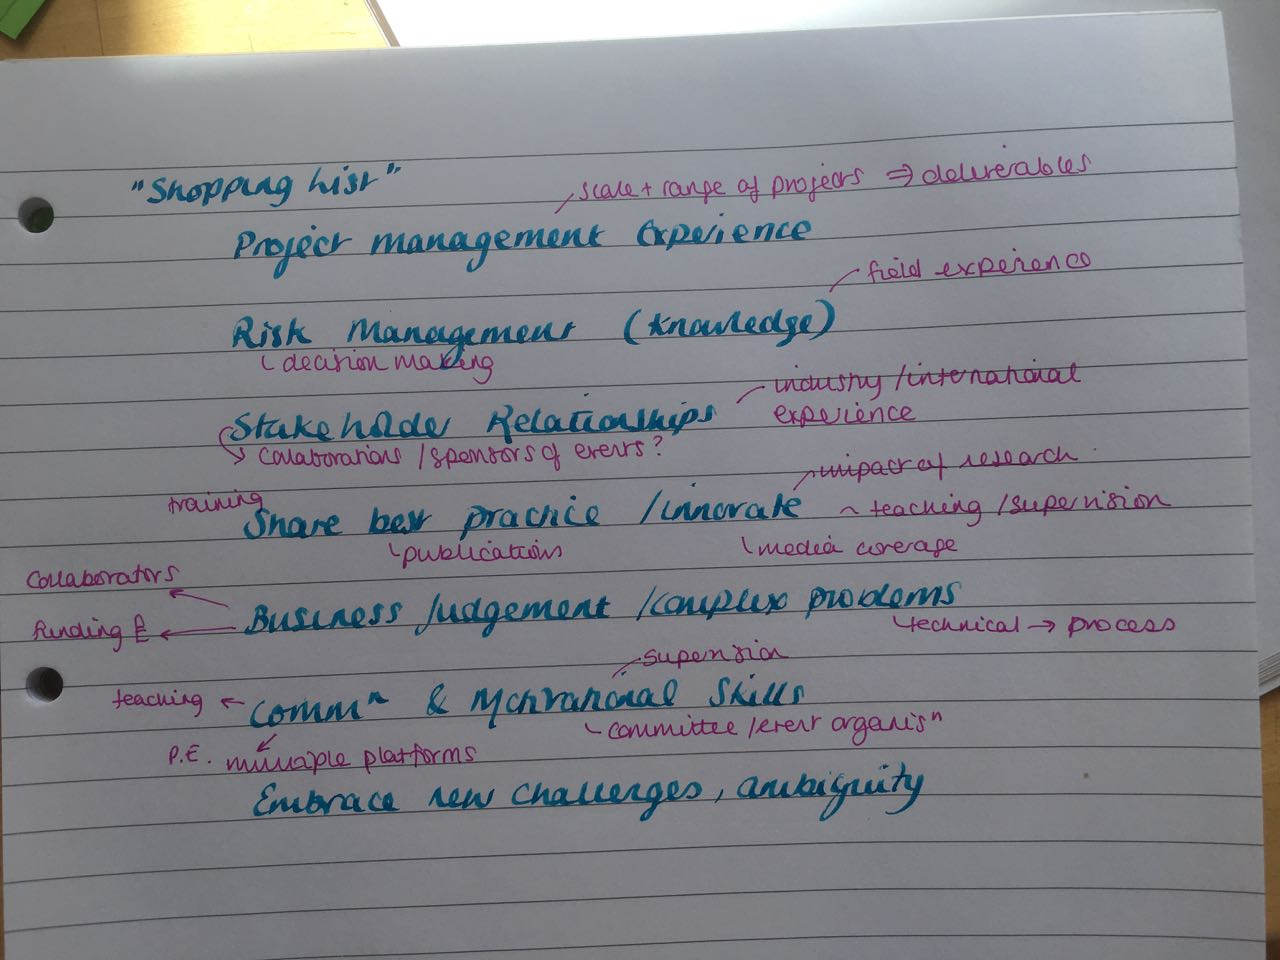 "Shopping list"
scale + range of projects ⇒ deliverables
Project management Experience
field experience
Risk Management (knowledge)
decision making
industry / international
Stakeholder Relationships
experience
collaborations / sponsors of events?
impact of research
training
Share best practice / innovate ~ teaching / supervision
publications
media coverage
Collaborators
Business Judgement / complex problems
Funding £
technical → process
supervision
teaching ← Commⁿ & Motivational Skills
committee / event organisⁿ
P.E. multiple platforms
Embrace new challenges, ambiguity